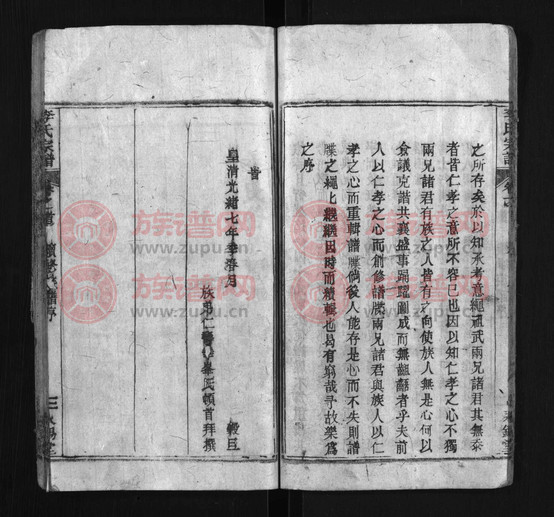 之所存矣於以知承考意繩祖武兩兄諸君其無忝
者昔仁孝之意所不容已也因以知仁孝之心不獨
兩兄諸君有族之人皆有之向使族人無是心何以
僉議克諧共襄盛事踴躍圖成而無齟齬者乎夫前
人以仁孝之心而創修譜牒兩兄諸君與族人以仁
孝之心而重輯譜牒倘後人能存是心而不失則譜
牒之繩繩繼繼因時而續輯也曷有窮哉予故樂為
之序
旹
皇清光緒七年季春月
族弟仁
氏頓首拜撰
李氏宗譜
卷之首
三
族谱网
www.zupu.cn
族谱网
www.zupu.cn
族谱网
www.zupu.cn
族谱网
www.zupu.cn